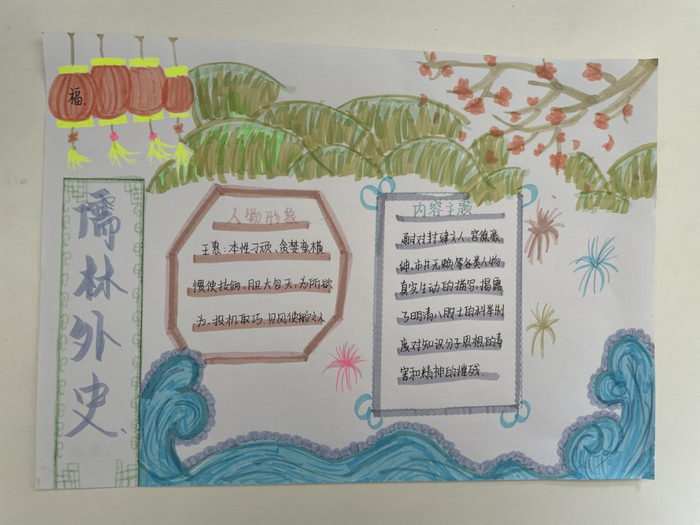 福
儒林外史
人物形象
王惠:本性刁顽、贪婪蛮横
惯使技俩,胆大包天,为所欲
为、投机取巧、见风使舵的小人
内容主题
通过对封建文人、官僚豪
绅、市井无赖等各类人物
真实生动的描写,揭露
了明清八股士的科举制
度对知识分子思想的毒
害和精神的摧残.